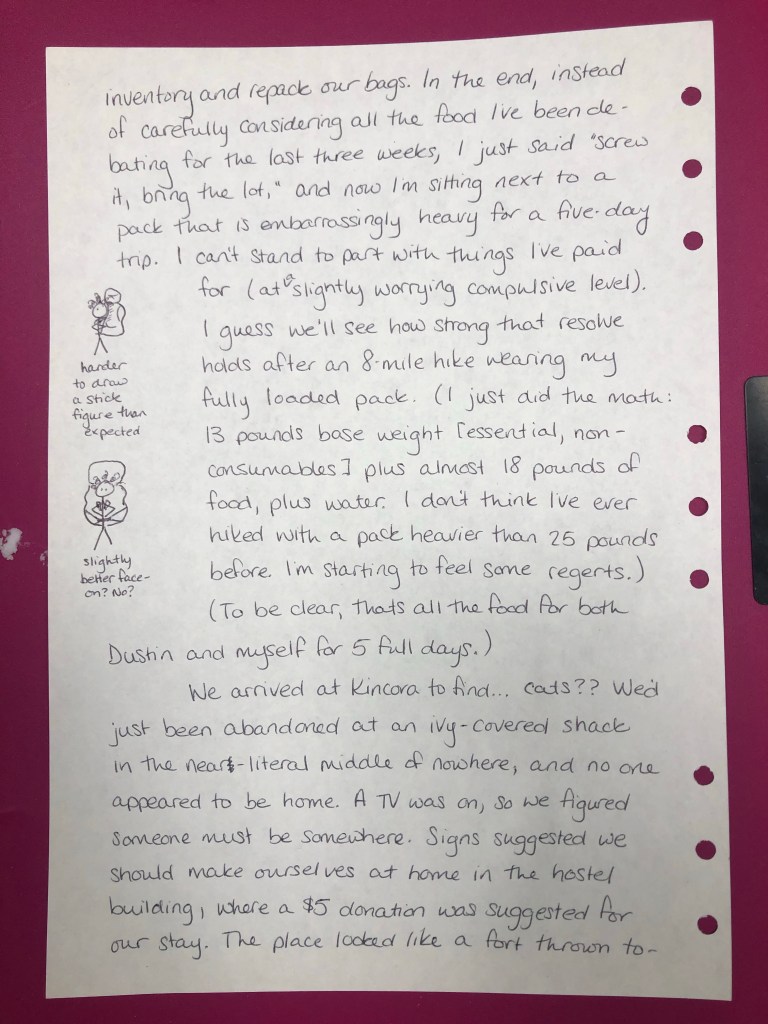 inventory and repack our bags. In the end, instead
of carefully considering all the food I've been de-
bating for the last three weeks, I just said "screw
it, bring the lot," and now I'm sitting next to a
pack that is embarrassingly heavy for a five-day
trip. I can't stand to part with things I've paid
for (at a slightly worrying compulsive level).
I guess we'll see how strong that resolve
holds after an 8-mile hike wearing my
fully loaded pack. (I just did the math:
13 pounds base weight [essential, non-
consumables] plus almost 18 pounds of
food, plus water. I don't think I've ever
hiked with a pack heavier than 25 pounds
before. I'm starting to feel some regerts.)
(To be clear, thats all the food for both
Dustin and myself for 5 full days.)
We arrived at Kincora to find... cats?? We'd
just been abandoned at an ivy-covered shack
in the near-literal middle of nowhere, and no one
appeared to be home. A TV was on, so we figured
someone must be somewhere. Signs suggested we
should make ourselves at home in the hostel
building, where a $5 donation was suggested for
our stay. The place looked like a fort thrown to-
harder
to draw
a stick
figure than
expected
slightly
better face-
on? No?